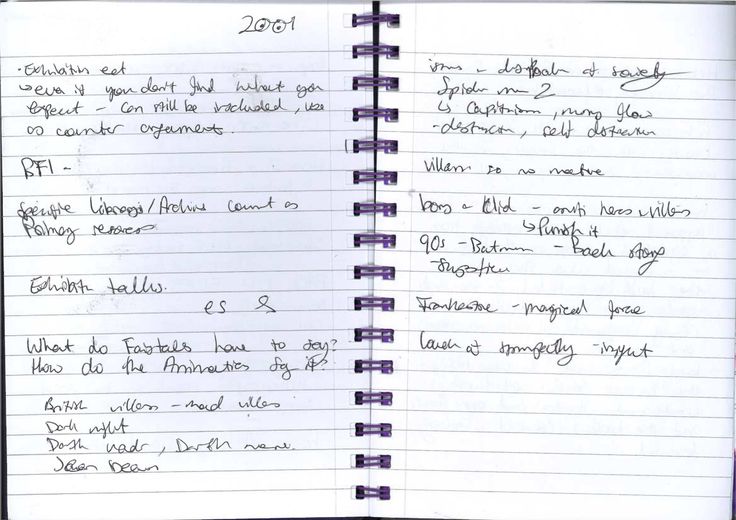 2001
· Exhibition ect
↳ even if you don't find what you
expect - can still be included, use
as counter argument.
BFI -
Specific Libraries/Archives count as
Primary resources
Exhibition talks.
es &
What do Fairtales have to say?
How do the Animatics say it?
British villans - mad villans
Dark night
Darth vadr, Darth maul.
James Dean
at society
Spider man 2
↳ Capitalism, money flow
- destruction, self distraction
villans no motive
- anti heros villans
↳ Punish it
90s - Batman - Back story
- Suggestion
Frankenstine - magical force
Laugh at sympathy - insight